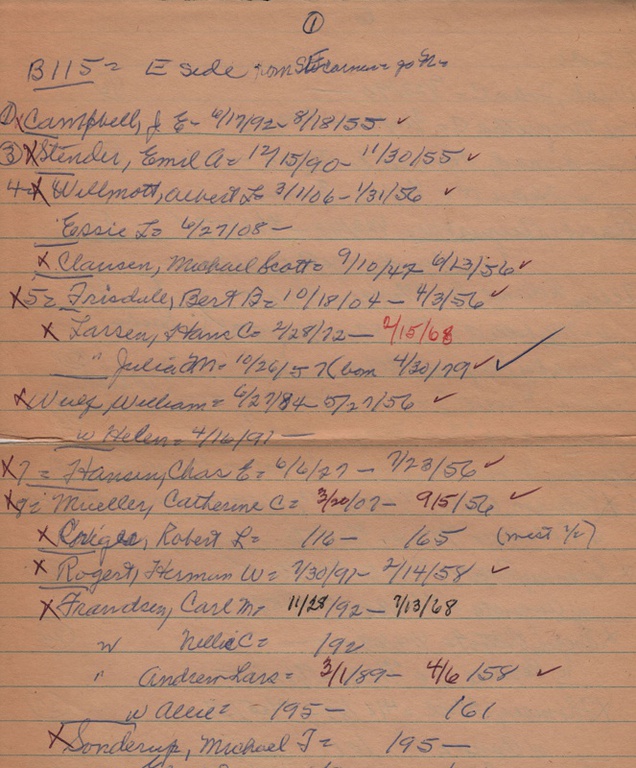 ①
B115 = E side from SE corner go N =
① x Campbell, J. E = 6/17/92 - 8/18/55 ✓
③ x Stender, Emil A = 12/15/90 - 11/30/55 ✓
4 = x Willmott, Albert L = 3/1/06 - 1/31/56 ✓
Essie L = 6/27/08 -
x Clausen, Michael Scott = 9/10/47 6/13/56 ✓
x 5 = Frisdale, Bert B = 10/18/04 - 4/3/56 ✓
x Larsen, Hans C = 2/28/72 - 2/15/68
" Julia M = 10/26/57 (born 4/30/79 ✓ ✓
x Wulf, William = 6/27/84 - 5/27/56 ✓
w Helen = 4/16/91 -
x 7 = Hansen, Chas E = 6/6/27 - 7/23/56 ✓
x 8 = Mueller, Catherine C = 3/20/07 - 9/5/56 ✓
x Robert L = 116 - 165 (west 1/2)
x Rogert, Herman W = 7/30/91 - 2/14/58 ✓
x Frandsen, Carl M = 11/28/92 - 7/13/68
w Nellie C = 192
" Andrew Lars = 3/1/89 - 4/6/58 ✓
w Allie = 195 - 161
x Sonderup, Michael T = 195 -